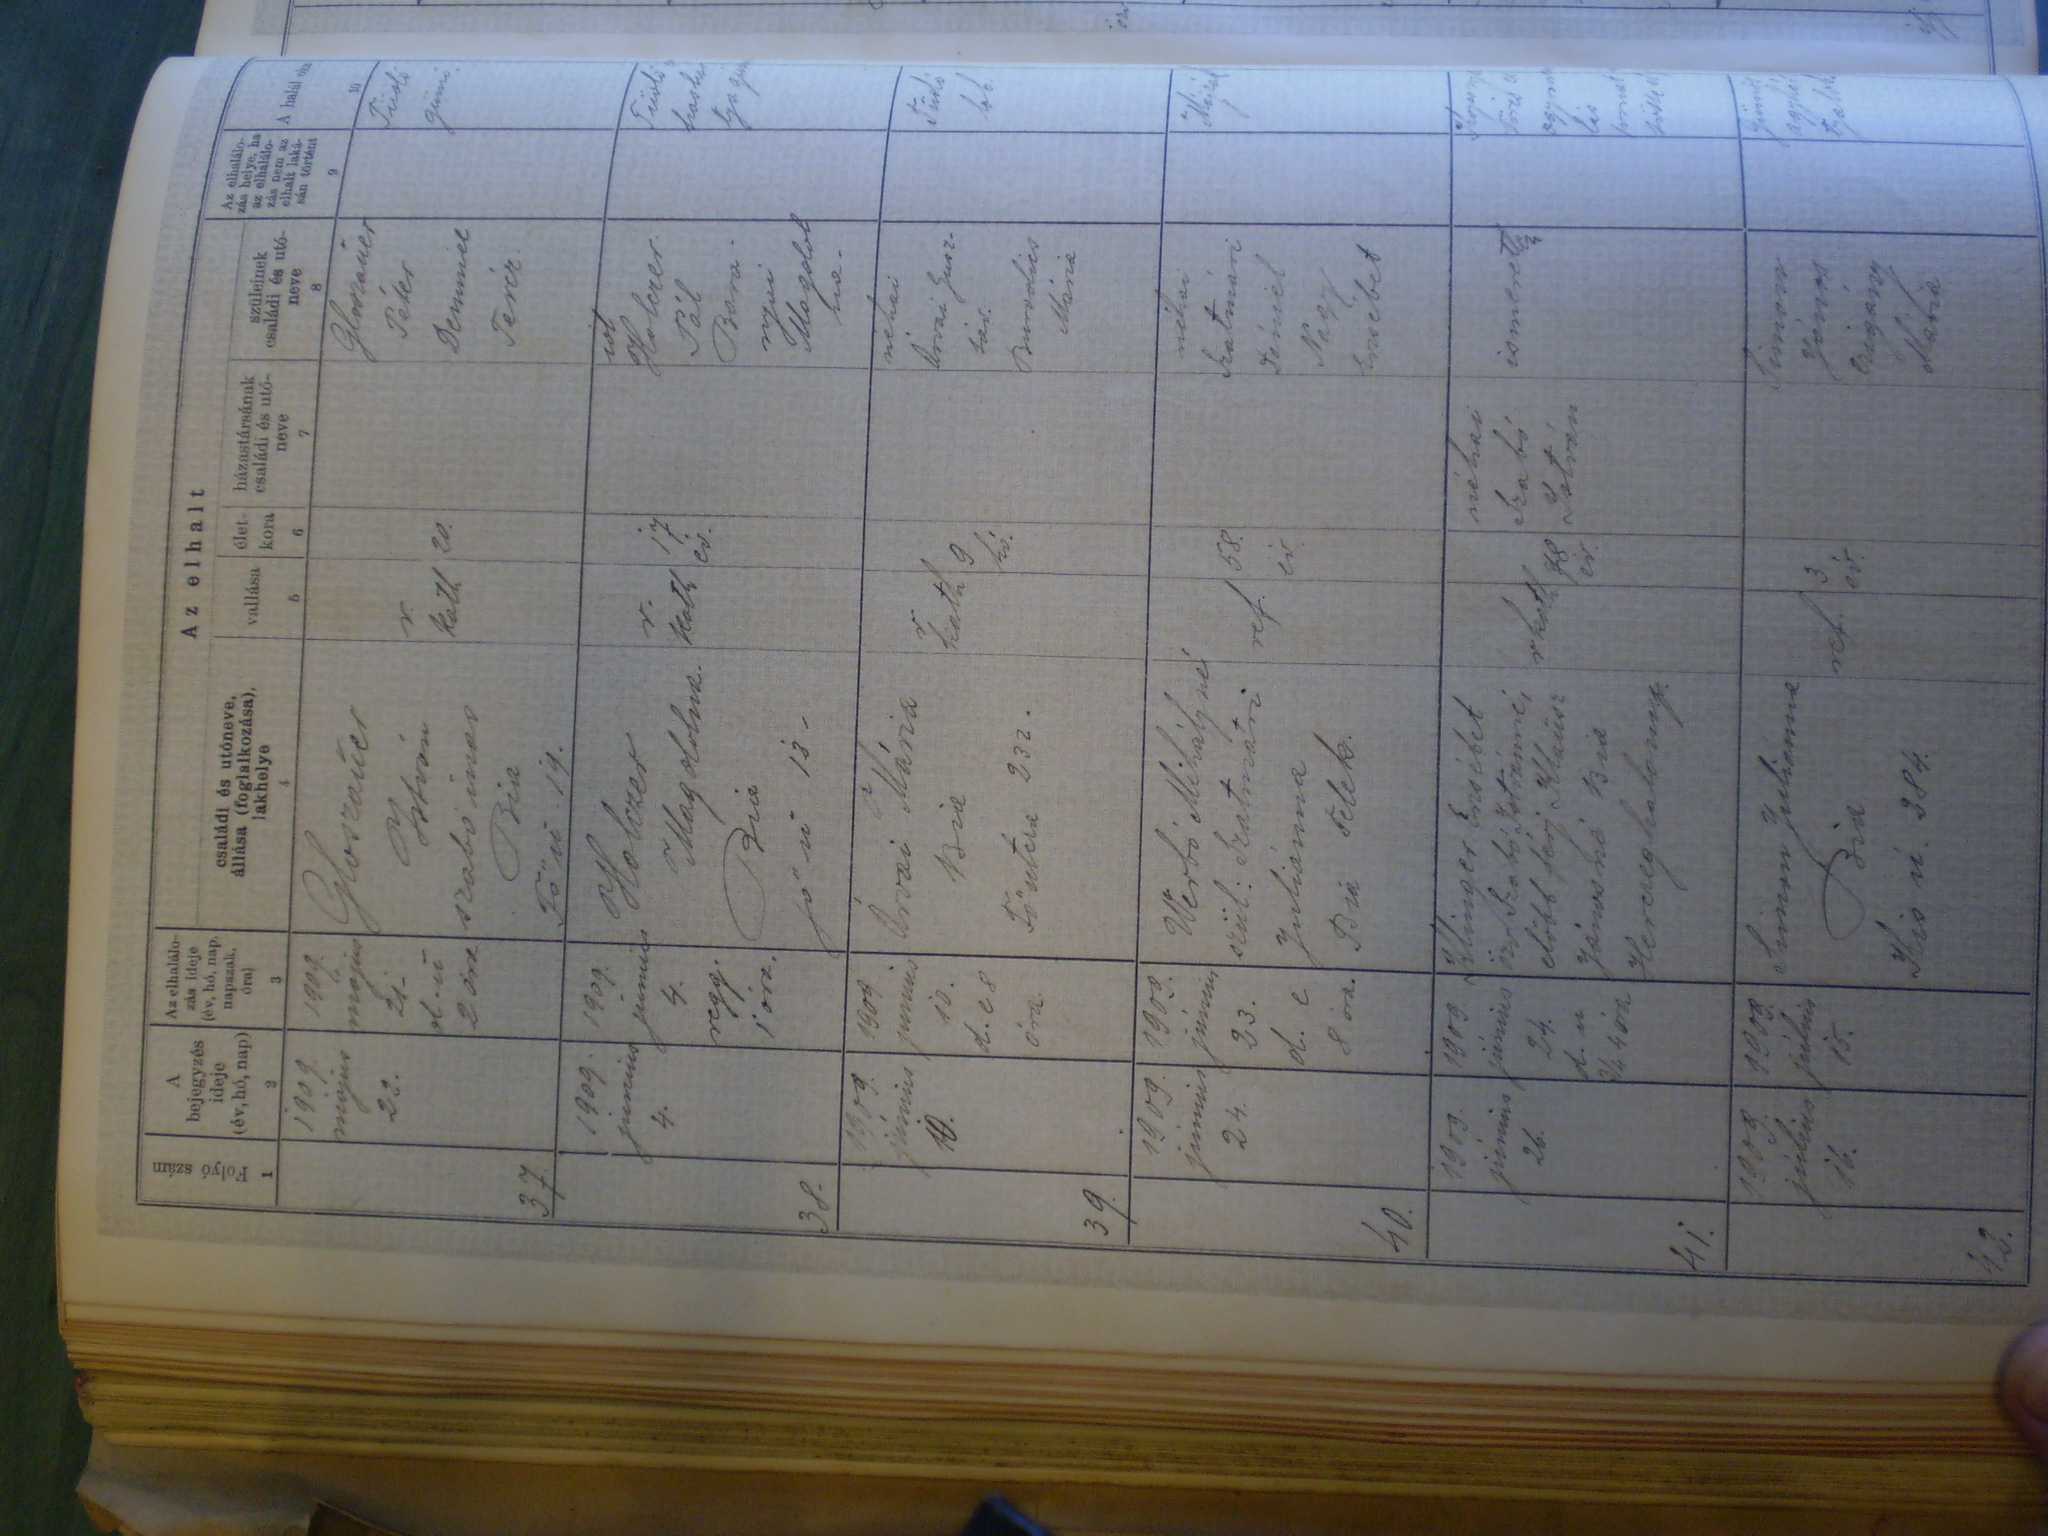 Az elhalt
Folyó szám
A
bejegyzés
ideje
(év, hó, nap)
Az elhalálo-
zás ideje
(év, hó, nap,
napszak,
óra)
családi és utóneve,
állása (foglalkozása),
lakhelye
vallása
élet-
kora
házastársának
családi és utó-
neve
szüleinek
családi és utó-
neve
Az elhalálo-
zás helye, ha
az elhalálo-
zás nem az
elhalt laká-
sán történt
A halál oka
1
2
3
4
5
6
7
8
9
10
37
1909.
május
22.
1909.
május
21.
d. u
2 óra
István
szabó inas
Bia
Fő u 19.
r.
kath
20.
Péter
Teréz.
Tüdő
gümő.
38.
1909.
junius
4.
1909.
junius
4.
regg.
1 óra.
Holczer
Magdolna.
Bia
fő u 13 -
r.
kath
17
év.
id
Holczer
Pál
Magdol
na.
Tüdő
39.
1909.
június
10.
1909
június
10.
d. e 8
óra.
Árvai Mária
Bia
Főutcza 232.
r
kath
9
hó.
néhai
Árvai Gusz-
táv.
Mária
Tüdő
lob.
40.
1909.
június
24.
1909.
június
23.
d. e
8 óra.
Werbó Mihályné
szül: Szatmári
Juliánna
Bia telek.
ref.
58.
év.
néhai
Szatmári
Dániel
Nagy
Erzsébet
41.
1909.
június
26.
1909.
június
24.
d. u
3/4 4 óra
Klinger Erzsébet
özv Szabó Istvánné,
előbb férj Klausz
Jánosné Bia
Herczeghalomp.
r kath
78
év.
néhai
Szabó
István
ismeretlen
42.
1909.
július
16.
1909.
július
15.
Simon Juliánna
Bia
Kis u. 384.
ref.
3
év.
Simon
János
Czigány
Mária